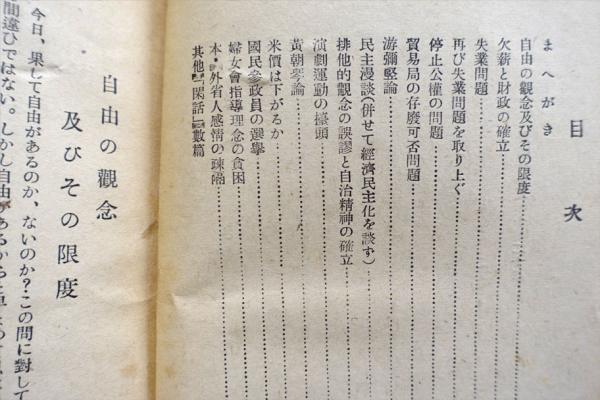 目次
まへがき
自由の觀念及びその限度
欠薪と財政の確立
失業問題
再び失業問題を取り上ぐ
停止公權の問題
貿易局の存廢可否問題
游彌堅論
民主漫談(併せて經濟民主化を談す)
排他的觀念の誤謬と自治精神の確立
演劇運動の擡頭
黃朝琴論
米價は下がるか
國民參政員の選擧
婦女會指導理念の貧困
本・外省人感情の疎隔
其他「閑話」數篇
自由の觀念
及びその限度
今日、果して自由があるのか、ないのか?この問に對して
間違ひではない。しかし自由があるからと